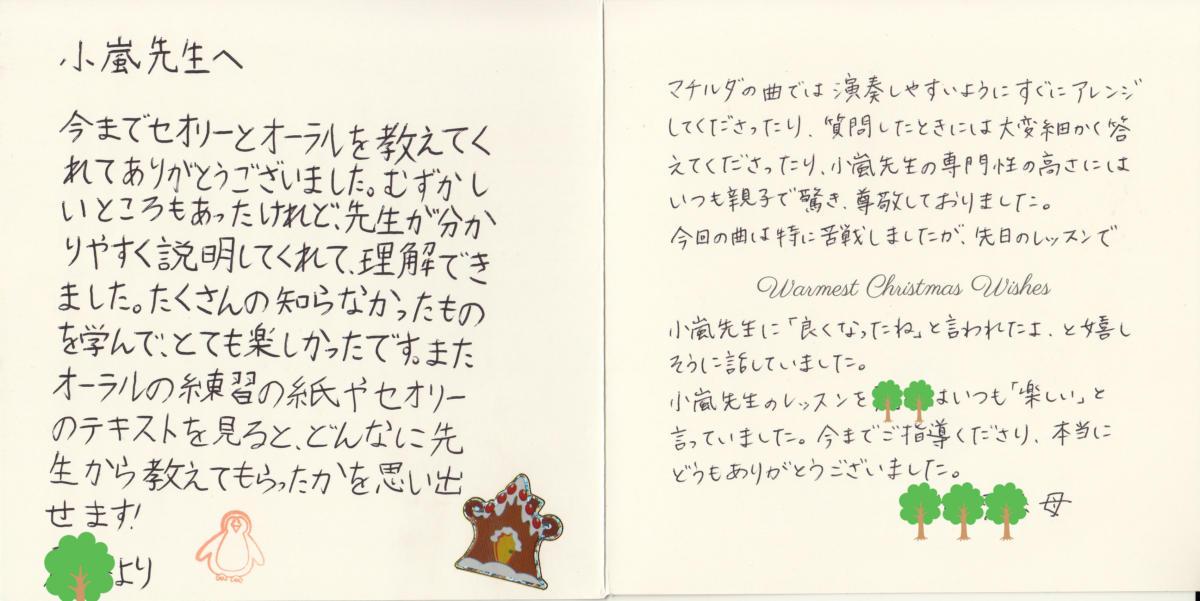 小嵐先生へ
今までセオリーとオーラルを教えてく
れてありがとうございました。むずかし
いところもあったけれど、先生が分か
りやすく説明してくれて、理解でき
ました。たくさんの知らなかったもの
を学んで、とても楽しかったです。また
オーラルの練習の紙やセオリー
のテキストを見ると、どんなに先
生から教えてもらったかを思い出
せます!
より
マチルダの曲では演奏しやすいようにすぐにアレンジ
してくださったり、質問したときには大変細かく答
えてくださったり、小嵐先生の専門性の高さには
いつも親子で驚き、尊敬しておりました。
今回の曲は特に苦戦しましたが、先日のレッスンで
Warmest Christmas Wishes
小嵐先生に「良くなったね」と言われたよ、と嬉し
そうに話していました。
小嵐先生のレッスンをはいつも「楽しい」と
言っていました。今までご指導くださり、本当に
どうもありがとうございました。
母